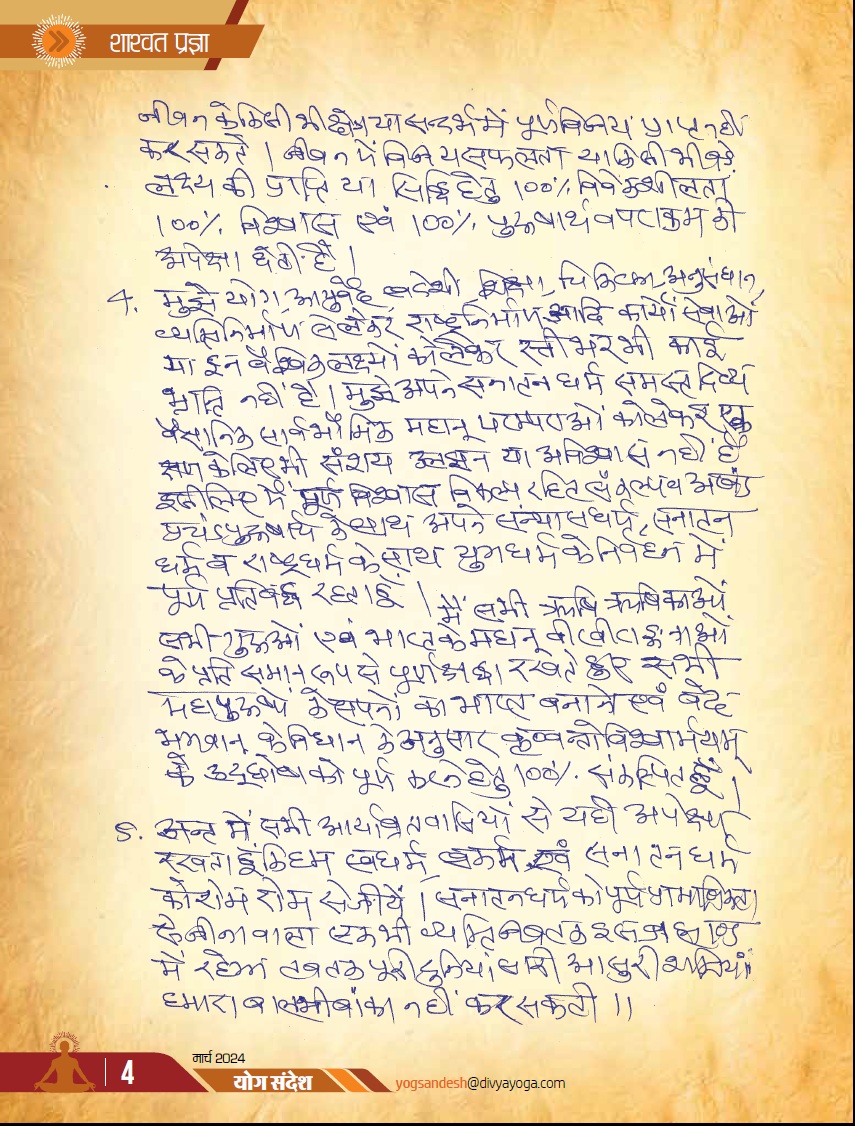 शाश्वत प्रज्ञा
जीवन के किसी भी क्षेत्र या सन्दर्भ में पूर्ण विजय प्राप्त नहीं
कर सकते । जीवन में विजय सफलता या किसी भी बड़े
लक्ष्य की प्राप्ति या सिद्धि हेतु 100% विवेकशीलता
100% विश्वास एवं 100% पुरूषार्थ व पराक्रम की
अपेक्षा होती है ।
4. मुझे योग, आयुर्वेद स्वदेशी शिक्षा, चिकित्सा, अनुसंधान,
व्यक्तिनिर्माण से लेकर राष्ट्रनिर्माण आदि कार्यों सेवाओं
या इन वैश्विक लक्ष्यों को लेकर रत्ती भर भी कोई
भ्रान्ति नहीं है । मुझे अपने सनातन धर्म समस्त दिव्य
वैज्ञानिक सार्वभौमिक महान् परम्पराओं को लेकर एक
क्षण के लिए भी संशय उलझन या अविश्वास नहीं है
इसीलिए मैं पूर्ण विश्वास विकल्प रहित संकल्प व अखंड
प्रचंड पुरूषार्थ के साथ अपने संन्यास धर्म, सनातन
धर्म व राष्ट्रधर्म के साथ युगधर्म के निर्वहन में
पूर्ण प्रतिबद्ध रहता हूँ । मैं सभी ऋषि ऋषिकाओं
सभी गुरूओं एवं भारत के महान् वीर वीरांगनाओं
के प्रति समान रूप से पूर्ण श्रद्धा रखते हुए सभी
महापुरूषों के सपनों का भारत बनाने एवं वेद
भगवान् के विधान के अनुसार कृण्वन्तो विश्वार्मयम्
के उद्घोष को पूर्ण करने हेतु 100% संकल्पित हूँ ।
5. अन्त में सभी आर्यावर्तवासियों से यही अपेक्षा
रखता हूँ कि हम स्वधर्म स्वकर्म एवं सनातन धर्म
को रोम रोम से जीयें । सनातन धर्म को पूर्ण प्रामाणिकता
से जीने वाला एक भी व्यक्ति जब तक इस ब्रह्माण्ड
में रहेगा तब तक पूरी दुनियां की सारी आसुरी शक्तियां
हमारा बाल भी बांका नहीं कर सकती ।।
4
मार्च 2024
योग संदेश
yogsandesh@divyayoga.com